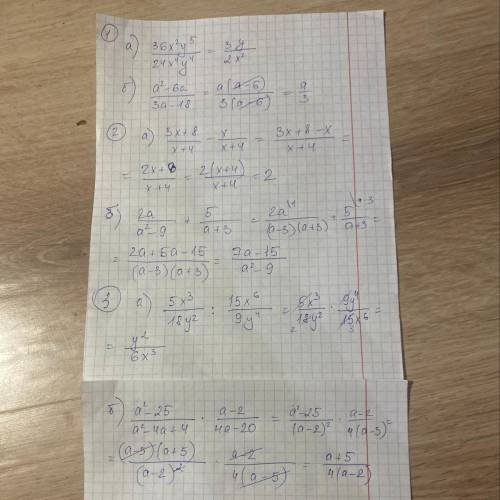 ① а) 36x²y⁵ / 24x⁴y⁴ = 3y / 2x²
б) a²-6a / 3a-18 = a(a-6) / 3(a-6) = a / 3
② а) 3x+8 / x+4 - x / x+4 = 3x+8-x / x+4 =
= 2x+8 / x+4 = 2(x+4) / x+4 = 2
б) 2a / a²-9 + 5 / a+3 = 2a \1 / (a-3)(a+3) + 5 \a-3 / a+3 =
= 2a+5a-15 / (a-3)(a+3) = 7a-15 / a²-9
③ а) 5x³ / 18y² : 15x⁶ / 9y⁴ = 5x³ / 18y² 2 · 9y⁴ / 15x⁶ 3 =
= y² / 6x³
б) a²-25 / a²-4a+4 · a-2 / 4a-20 = a²-25 / (a-2)² · a-2 / 4(a-5) =
= (a-5)(a+5) / (a-2)² · a-2 / 4(a-5) = a+5 / 4(a-2)